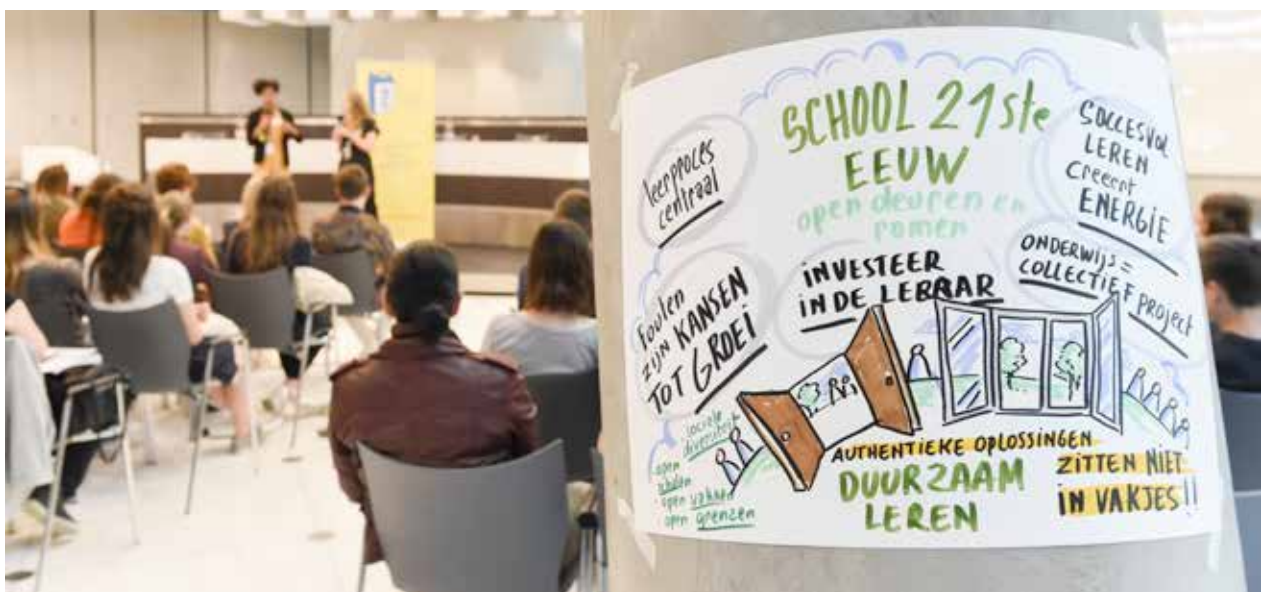 SCHOOL 21ste
EEUW
open deuren en
ramen
leerproces
centraal
SUCCESVOL
LEREN
creëert
ENERGIE
INVESTEER
IN DE LERAAR
ONDERWIJS =
COLLECTIEF PROJECT
Fouten
zijn KANSEN
TOT GROEI
sociale
diversiteit
open
scholen
open vakken
open grenzen
AUTHENTIEKE OPLOSSINGEN
ZITTEN NIET
IN VAKJES!!
DUURZAAM
LEREN